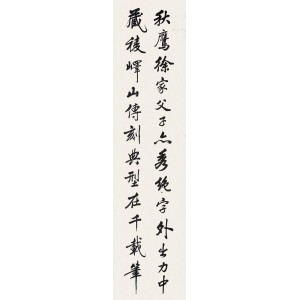 秋鷹徐家父子亦秀絕字外出力中
藏稜嶧山傳刻典型在千載筆